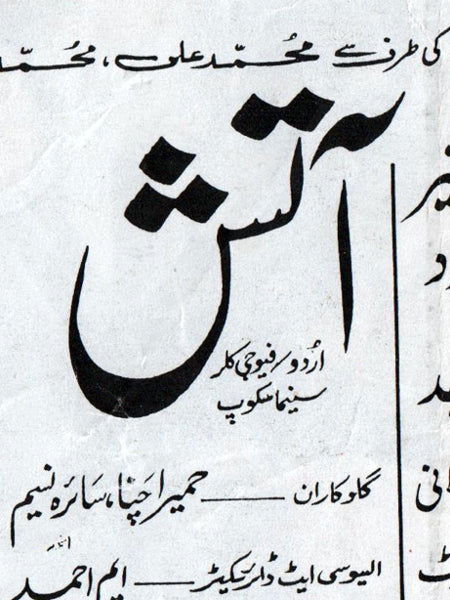 کی طرف سے محمّد علی، محمّد
آتش
اُردو/فیوجی کلر
سینما سکوپ
گلوکاران — حمیرا چنا، سائرہ نسیم
ایسوسی ایٹ ڈائریکٹر — ایم احمد